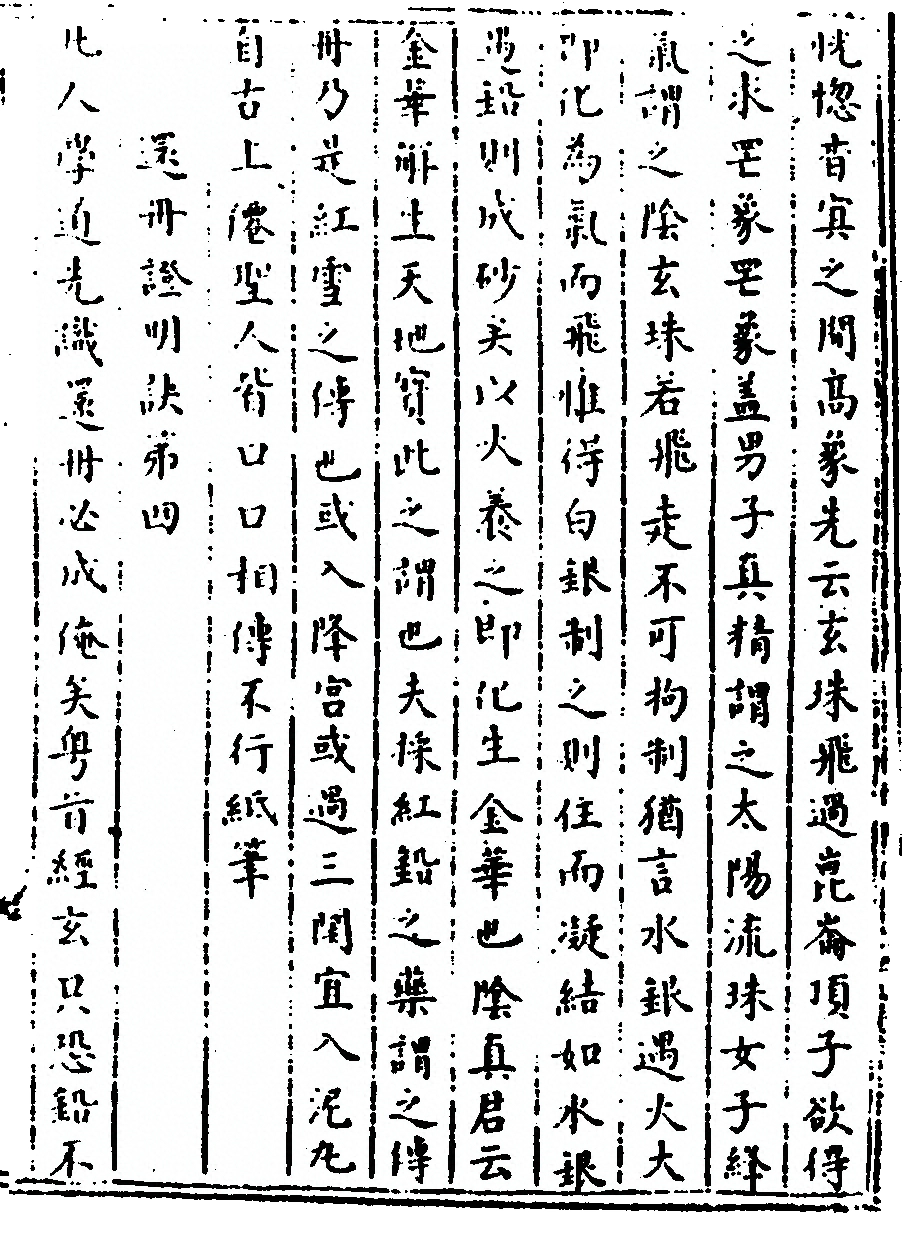 恍惚杳冥之間高象先云玄珠飛過崑崙頂子欲得
之求罔象罔象盖男子真精謂之太陽流珠女子絳
氣謂之陰玄珠若飛走不可拘制猶言水銀遇火大
即化為氣而飛惟得白銀制之則住而凝結如水銀
遇鉛則成砂矣以火養之即化生金華也陰真君云
金華觧生天地寳此之謂也夫採紅鉛之藥謂之傳
丹乃是紅雪之傳也或入降宫或過三関宜入泥丸
自古上僊聖人皆口口相傳不行紙筆
還丹證明訣第四
凡人學道先識還丹必成俺矣粤昔經玄只恐鉛不